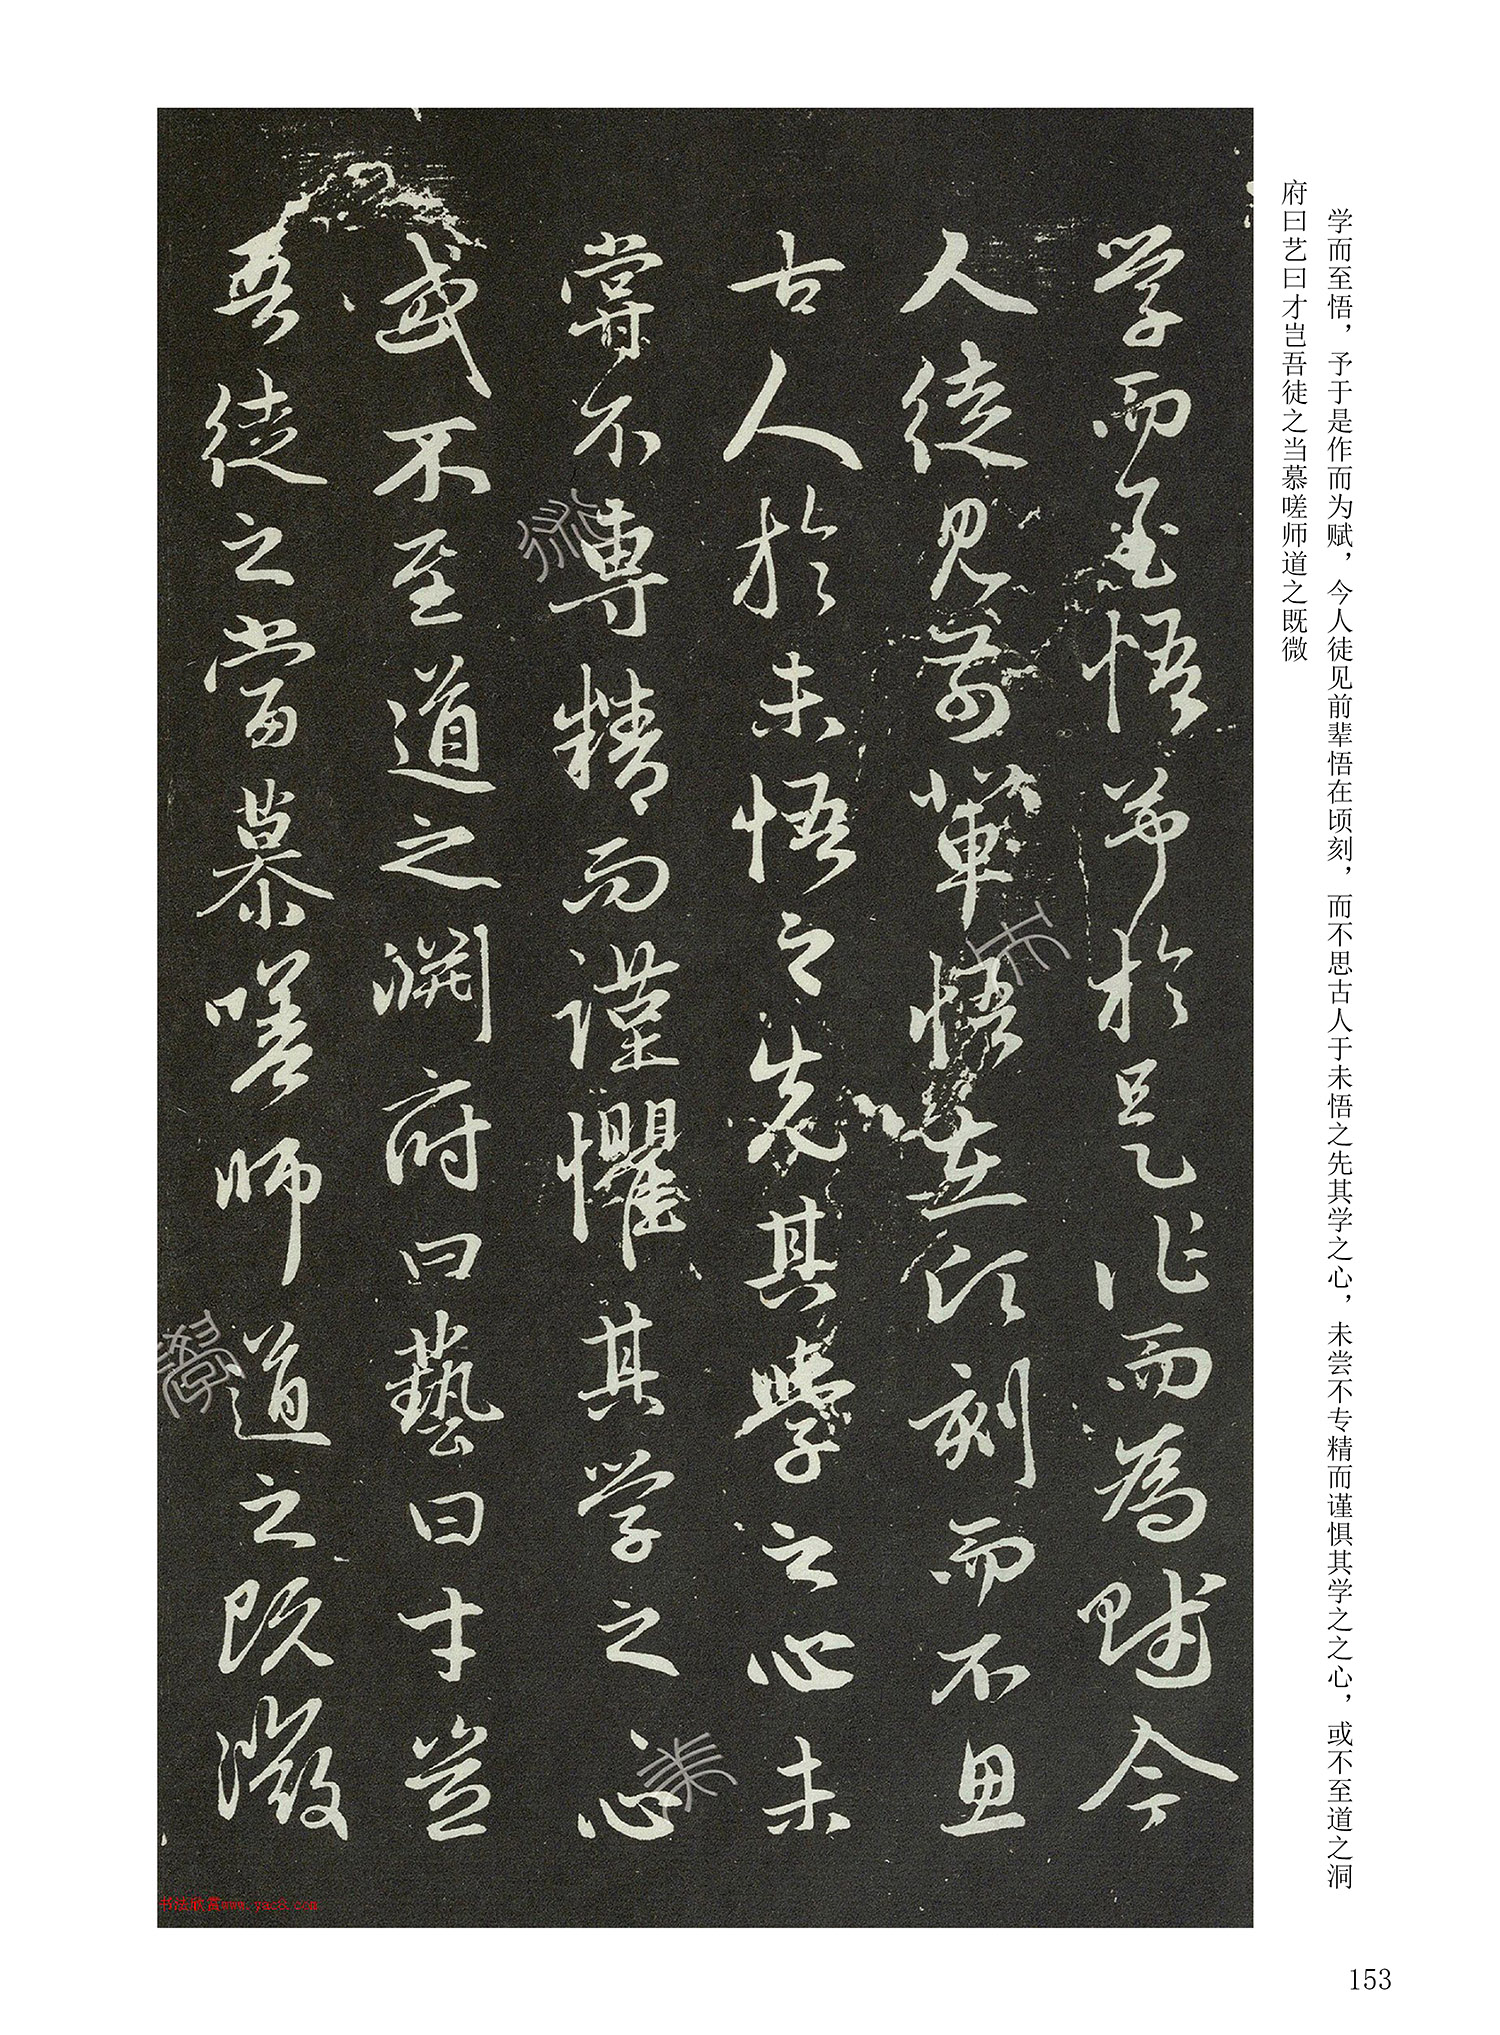 学而至悟，予于是作而为赋，今人徒见前辈悟在顷刻，而不思古人于未悟之先其学之心，未尝不专精而谨惧其学之之心，或不至道之洞
府曰艺曰才岂吾徒之当慕嗟师道之既微
学而至悟予於是作而為賦今
人徒見前輩悟在頃刻而不思
古人於未悟之先其學之心未
嘗不專精而謹懼其学之心
或不至道之淵府曰藝曰才豈
吾徒之當慕嗟師道之既微
书法欣赏www.yac8.com
153